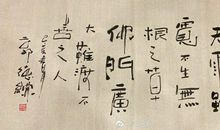 天雨雖
寬不生無
根之草
佛門廣
大難渡不
善之人